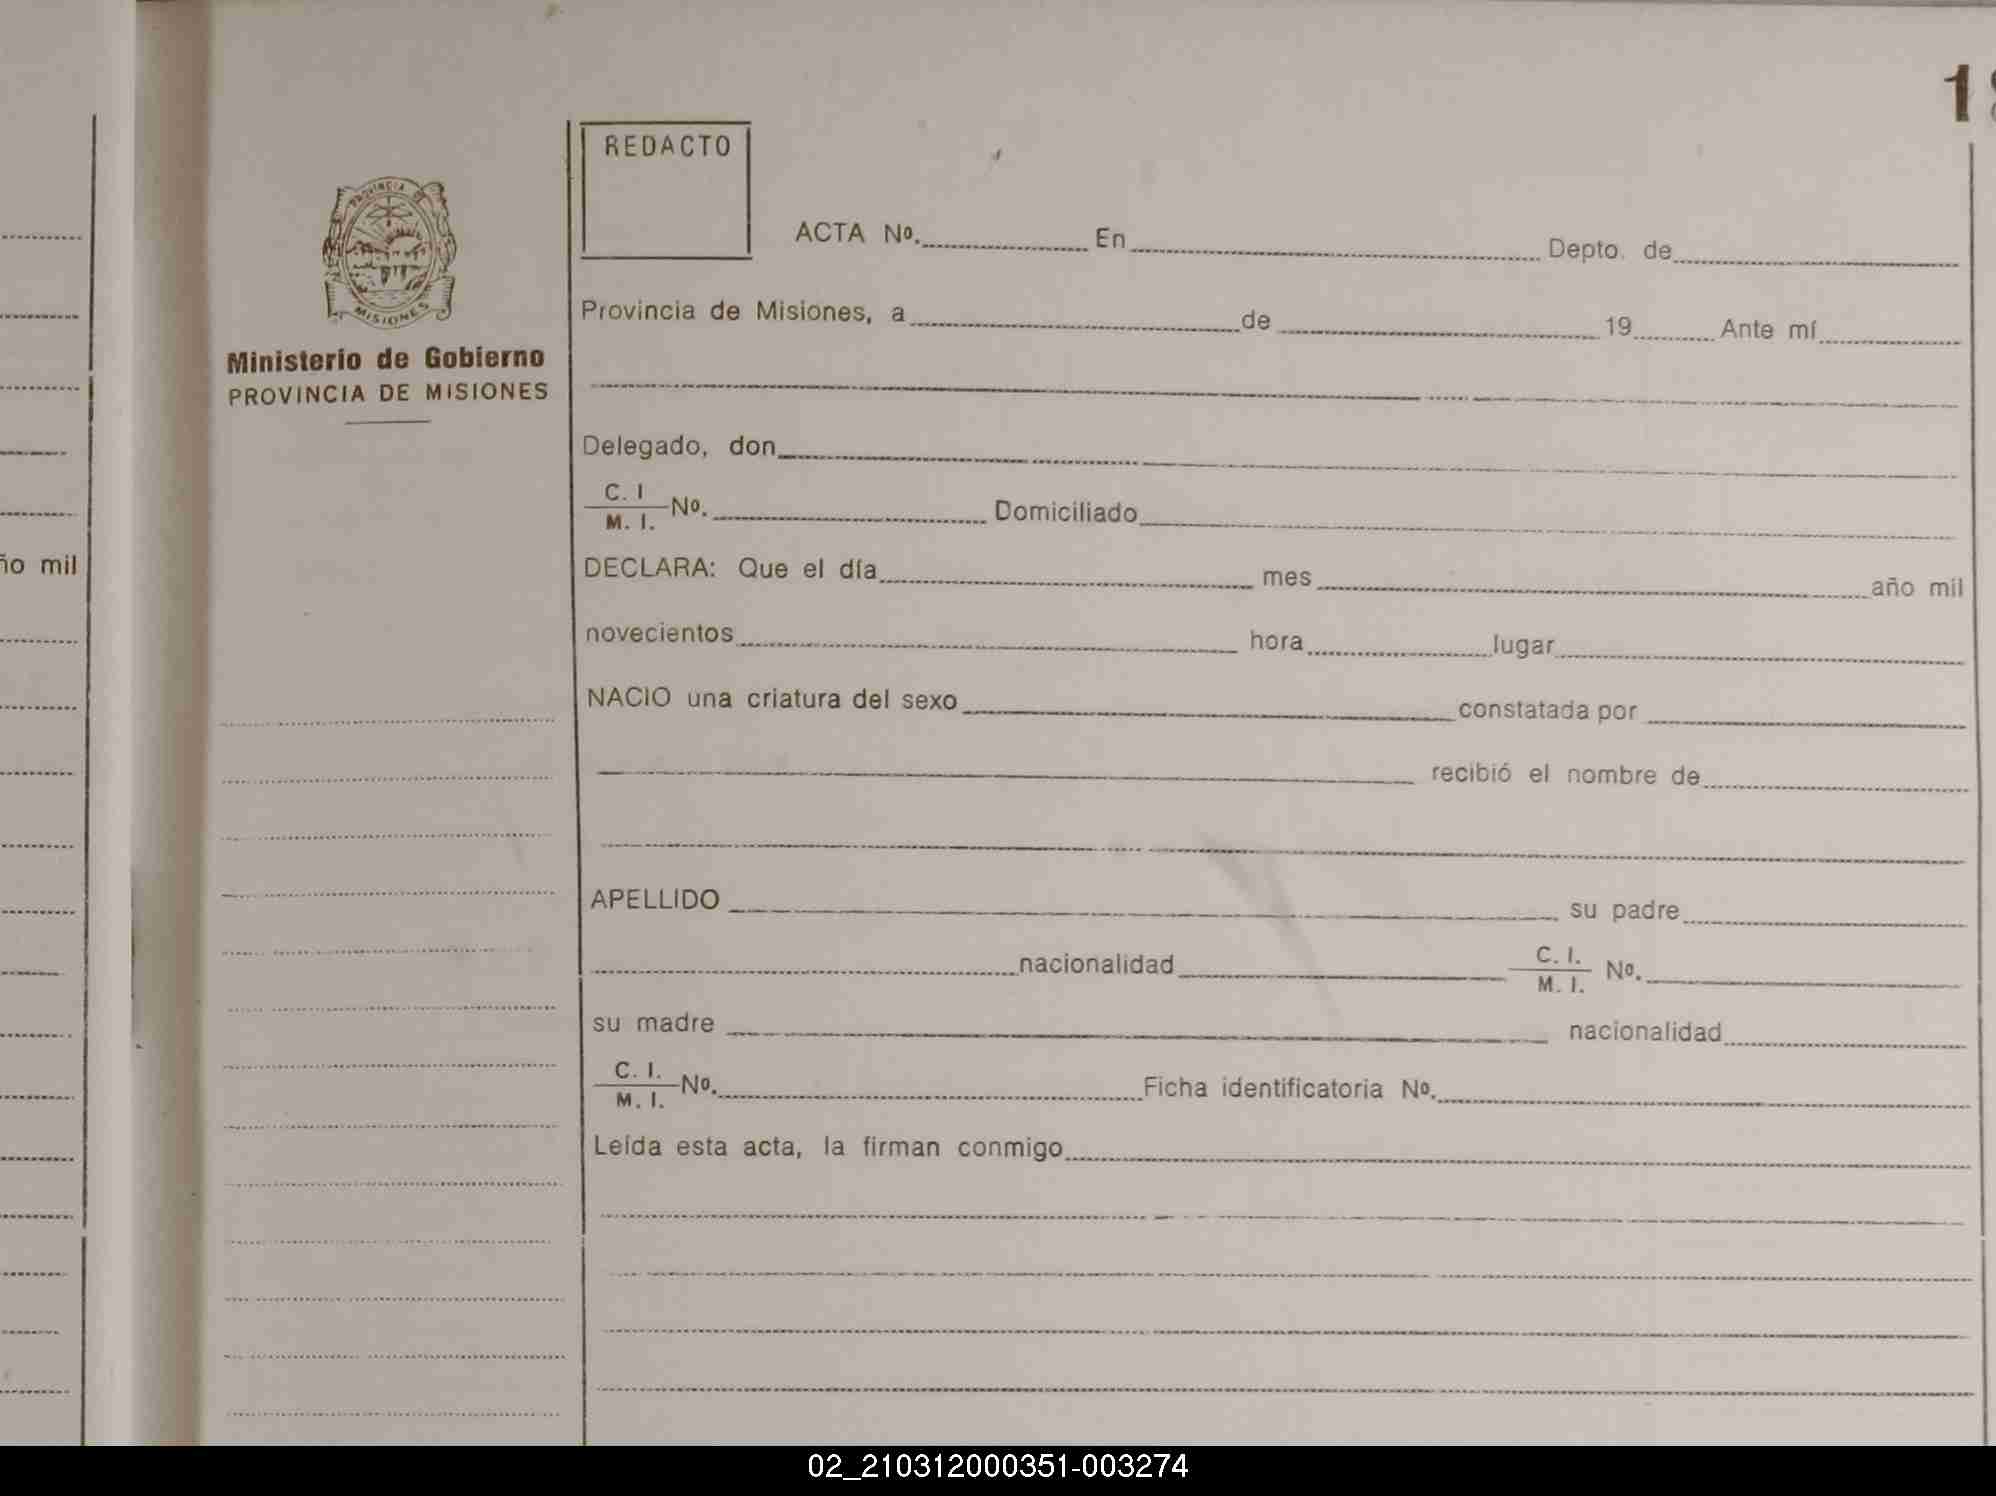 18
REDACTO
PROVINCIA DE
MISIONES
Ministerio de Gobierno
PROVINCIA DE MISIONES
ño mil
ACTA Nº. En Depto. de
Provincia de Misiones, a de 19 Ante mí
Delegado, don
C. I
M. I. Nº. Domiciliado
DECLARA: Que el día mes año mil
novecientos hora lugar
NACIO una criatura del sexo constatada por
recibió el nombre de
APELLIDO su padre
nacionalidad C. I.
M. I. Nº.
su madre nacionalidad
C. I.
M. I. Nº. Ficha identificatoria Nº.
Leída esta acta, la firman conmigo
02_210312000351-003274